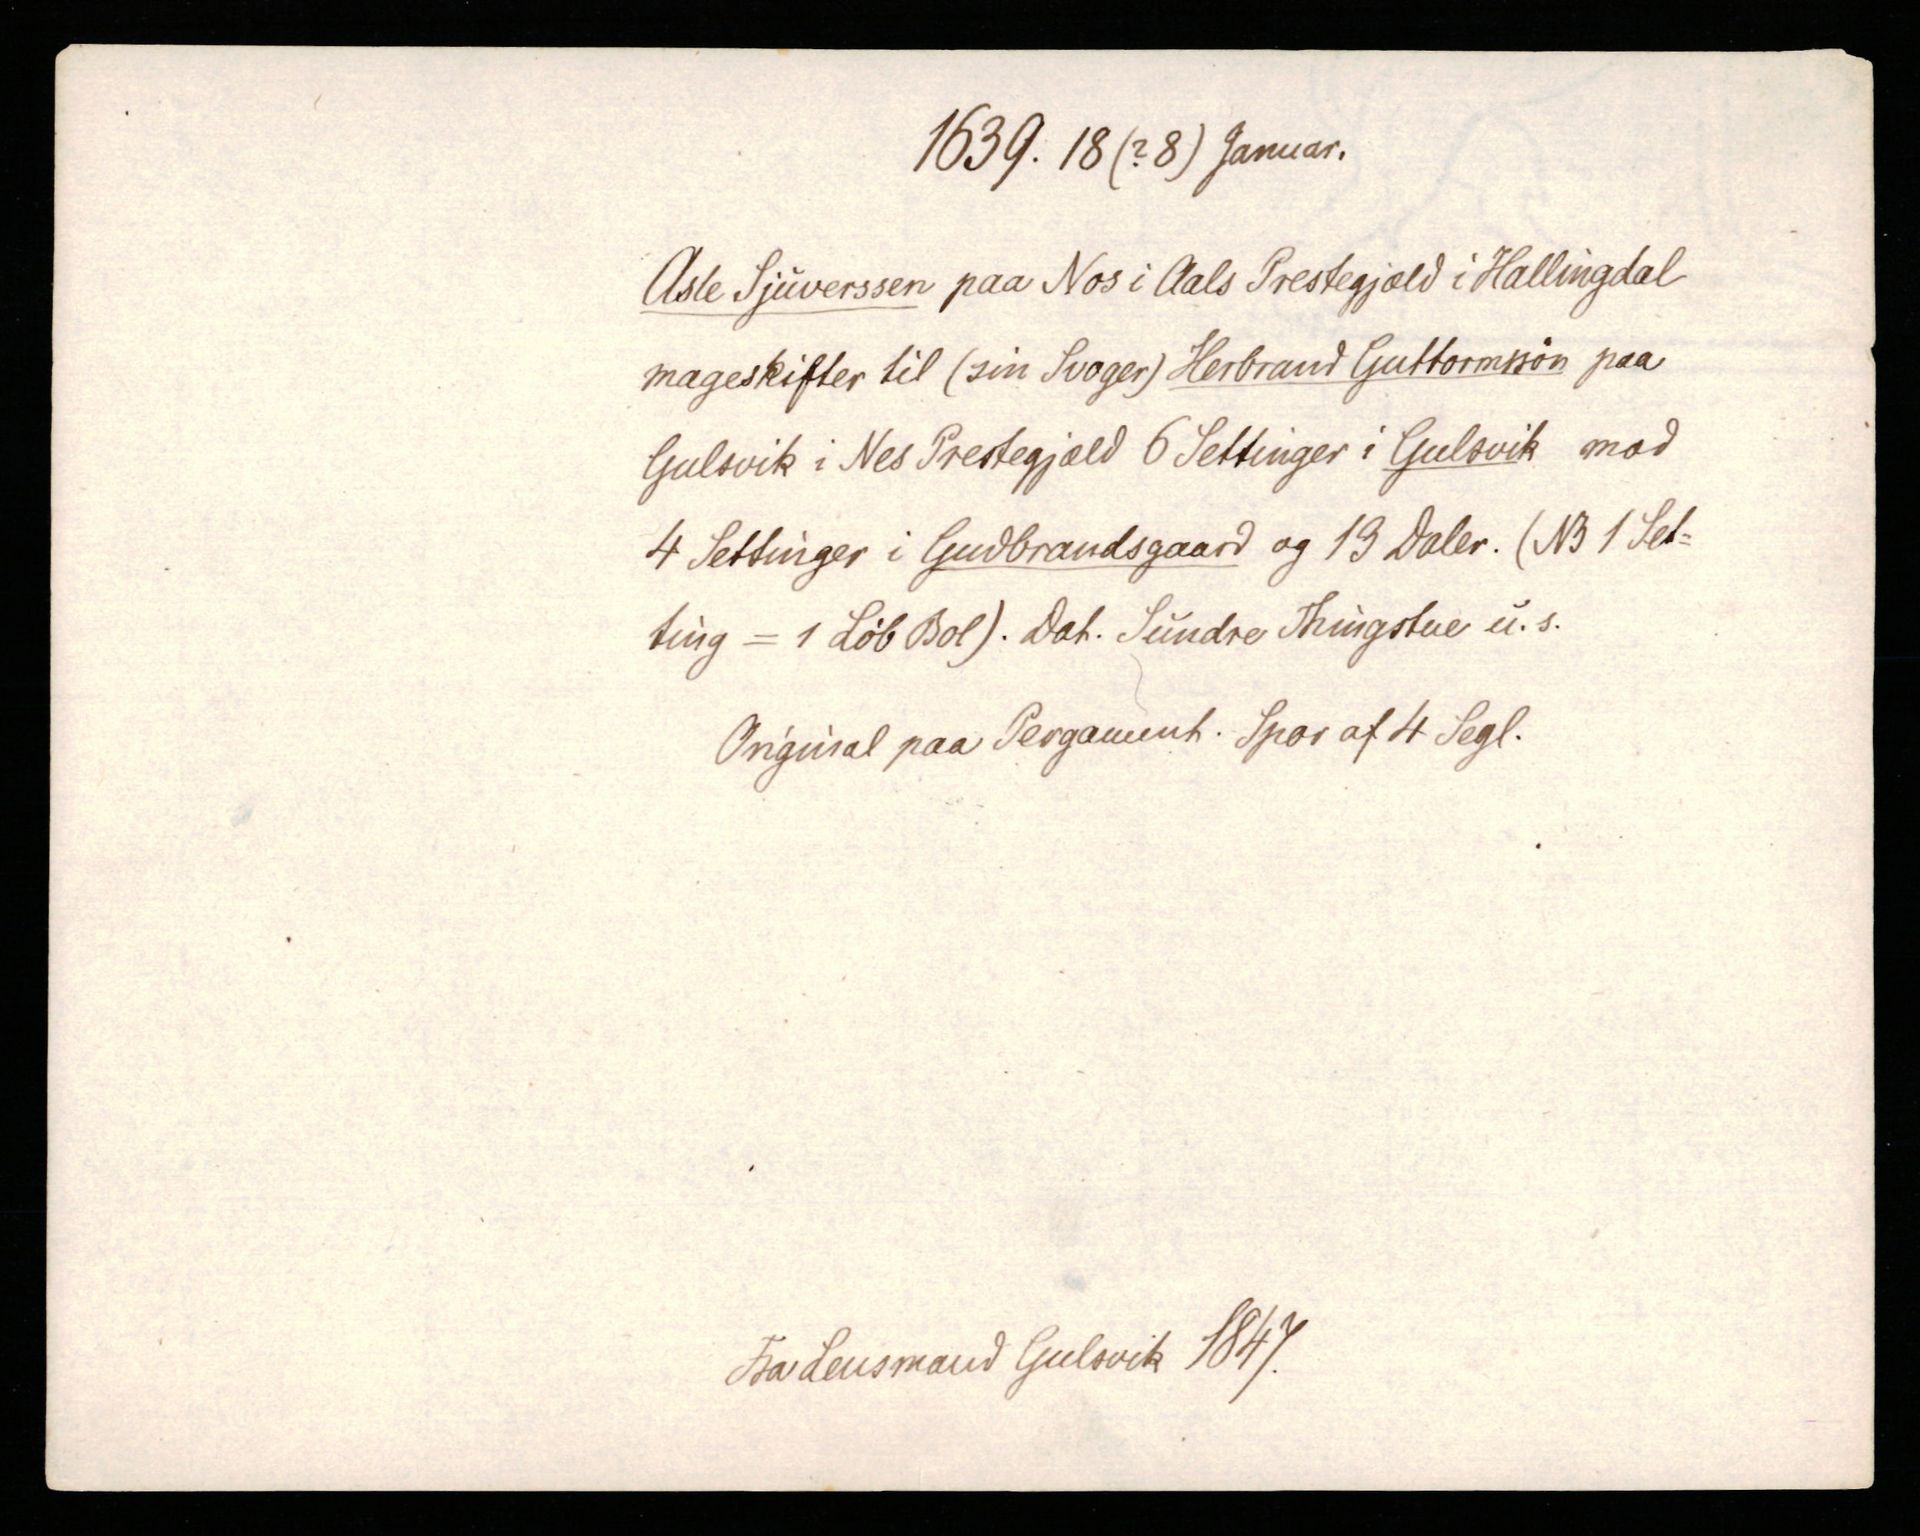 1639. 18 (? 8) Januar.
Asle Sjuverssen paa Nos i Aals Prestegjæld i Hallingdal
mageskifter til (sin Svoger) Herbrand Guttormssön paa
Gulsvik i Nes Prestegjæld 6 Settinger i Gulsvik mod
4 Settinger i Gudbrandsgaard og 13 Daler. (NB 1 Set-
ting = 1 Löb Bol). Dat. Sundre Thingstue u. s.
Original paa Pergament. Spor af 4 Segl.
Fra Lensmand Gulsvik 1847.